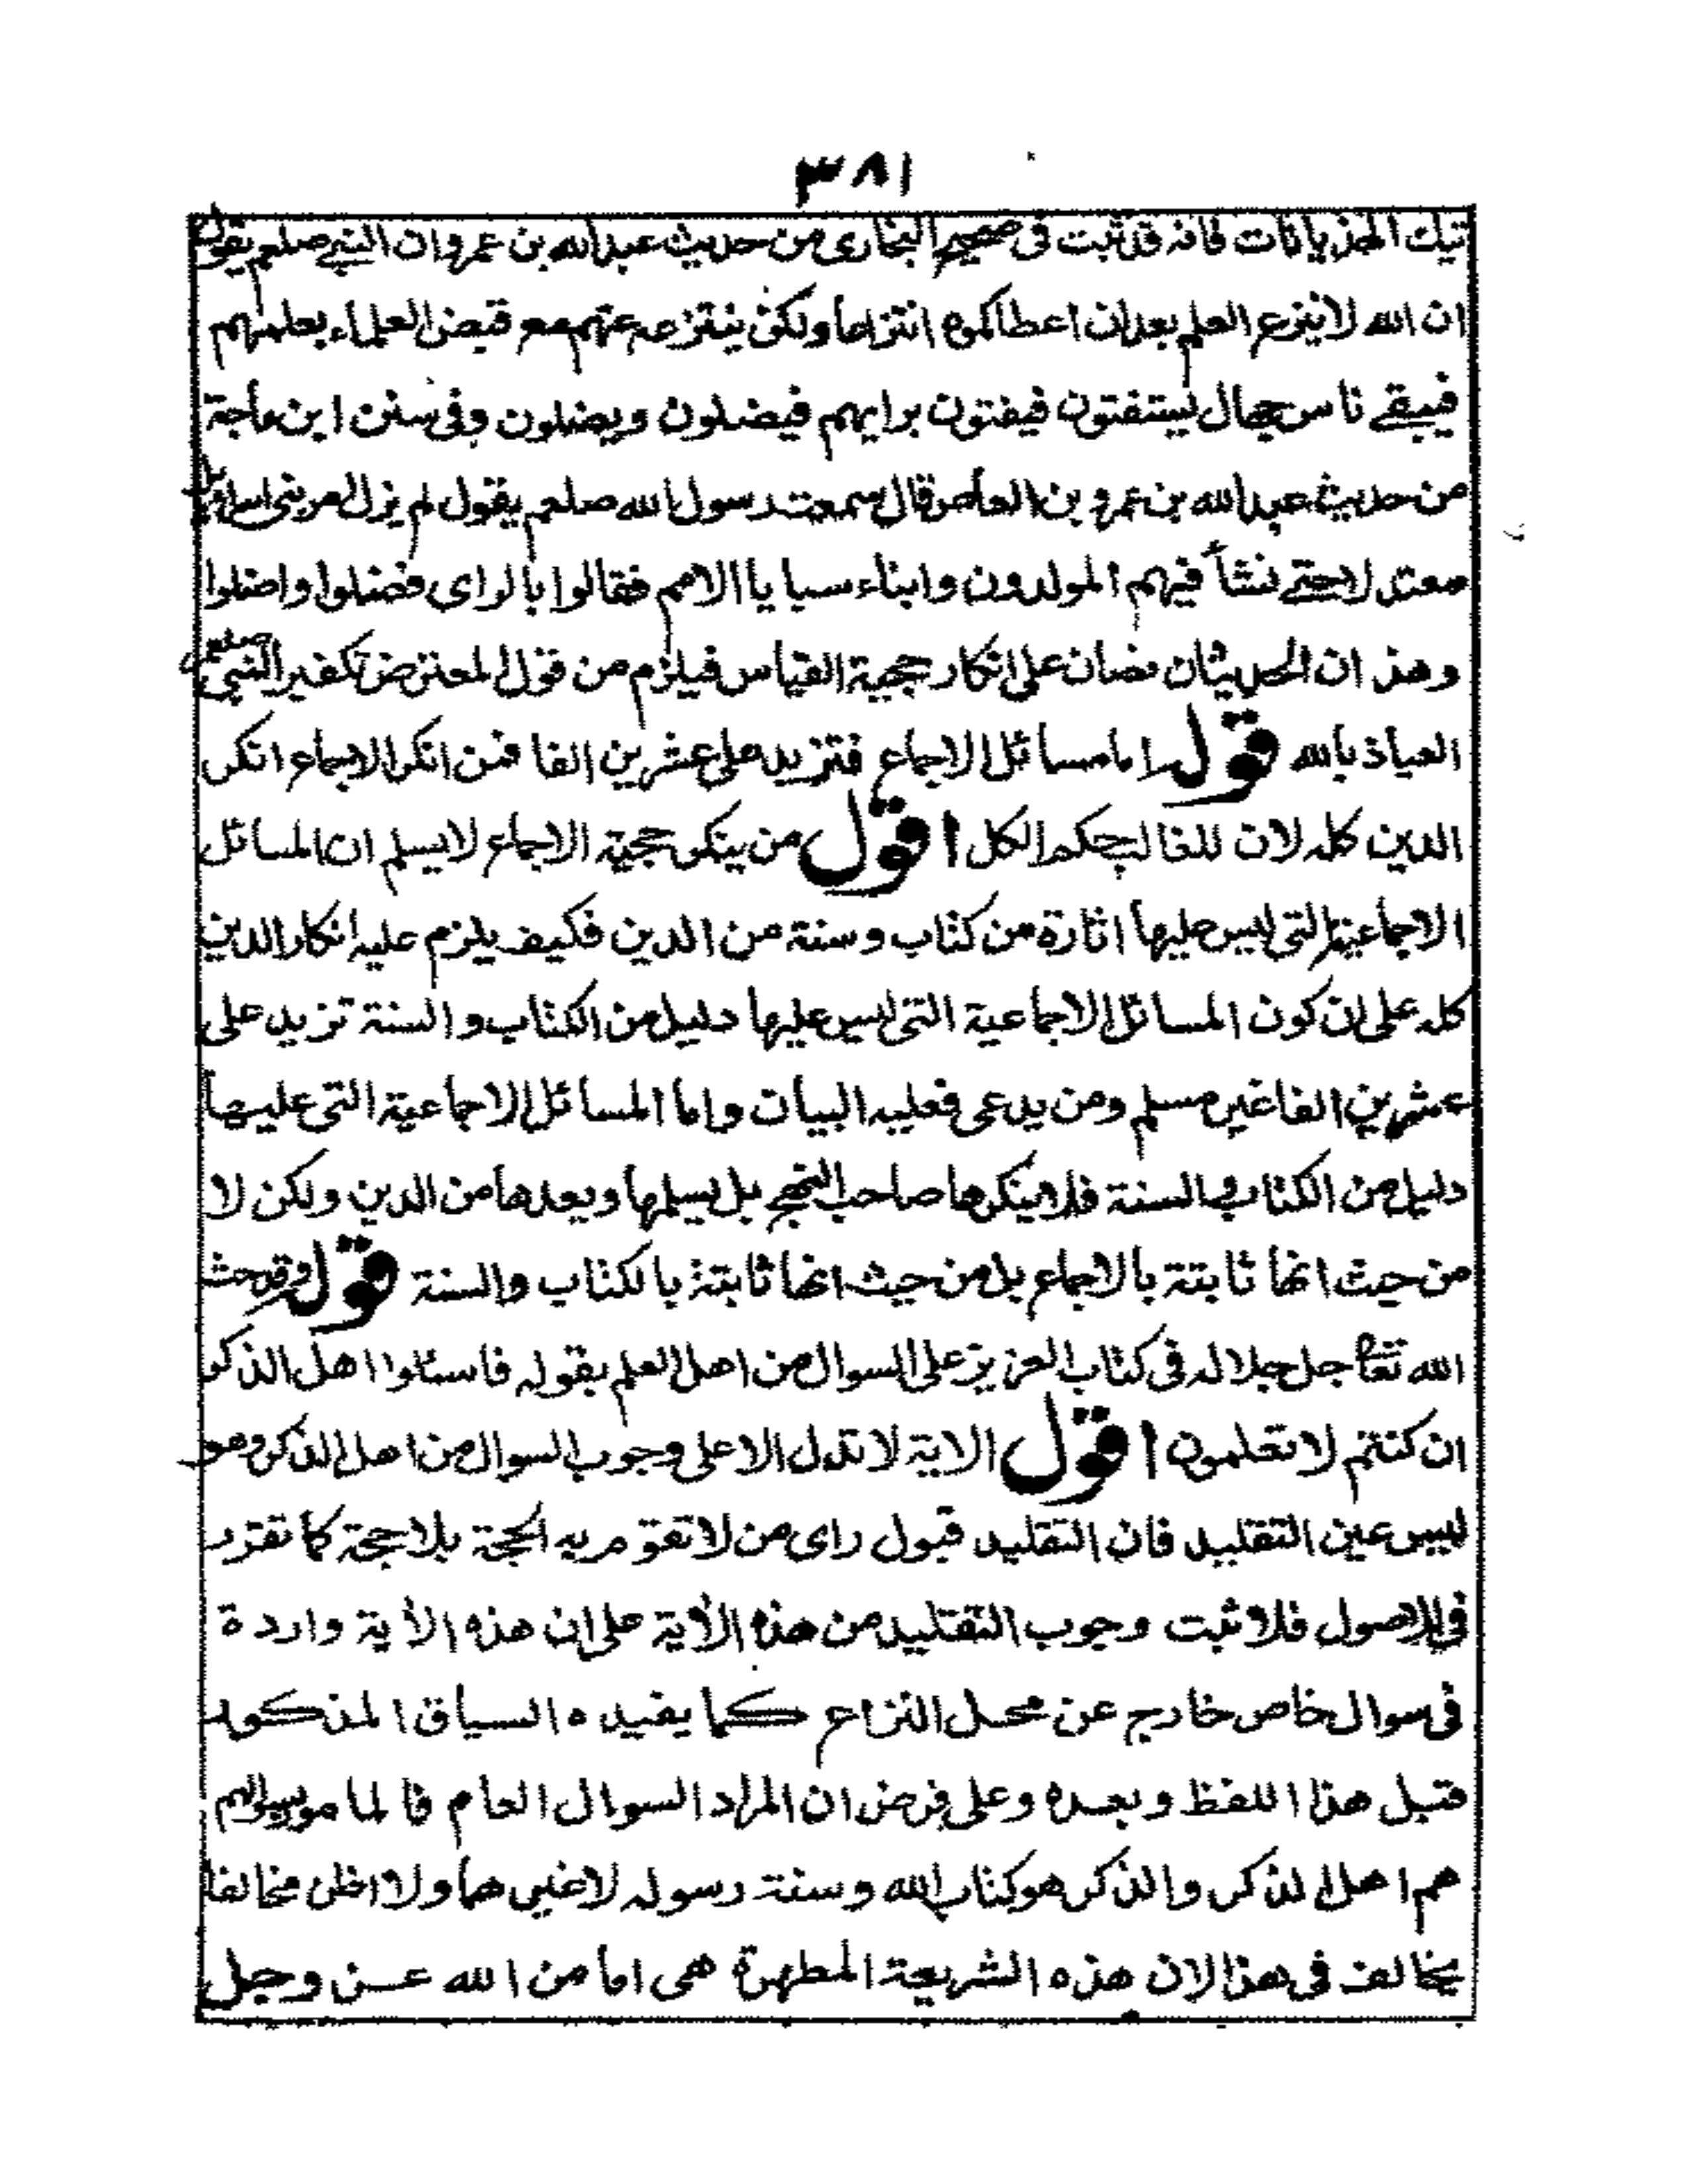 ٣٨١
تيك الهذيانات فانه قد ثبت فى صحيح البخارى من حديث عبدالله بن عمرو ان النبي صلعم يقول
ان الله لا ينزع العلم بعد ان اعطاكموه انتزاعا ولكن ينتزعه عنهم مع قبض العلماء بعلمهم
فيبقے ناس جهال يستفتون فيفتون برايهم فيضلون ويضلون وفى سنن ابن ماجة
من حديث عبدالله بن عمرو بن العاص قال سمعت رسول الله صلعم يقول لم يزل امر بنى اسرائيل
معتدلا حتے نشأ فيهم المولدون وابناء سبايا الامم فقالوا بالراى فضلوا واضلوا
وهذان الحديثان نضان على انكار حجية القياس فيلزم من قول المعترض تكفير النبي صلعم
العياذ بالله قولہ اما مسائل الاجماع فتزيد على عشرين الفا فمن انكر الاجماع انكر
الدين كله لان للغالب حكم الكل اقول من ينكر حجية الاجماع لا يسلم ان المسائل
الاجماعية التى ليس عليها اثارة من كتاب وسنة من الدين فكيف يلزم عليه انكار الدين
كله على ان كون المسائل الاجماعية التى ليس عليها دليل من الكتاب والسنة تزيد على
عشرين الفا غير مسلم ومن يدعى فعليه البيان واما المسائل الاجماعية التى عليها
دليل من الكتاب والسنة فلا ينكرها صاحب النهج بل يسلمها ويعدها من الدين ولكن لا
من حيث انها ثابتة بالاجماع بل من حيث انها ثابتة بالكتاب والسنة قولہ وقد حث
الله تعالى جل جلاله فى كتاب العزيز على السوال من اهل العلم بقوله فاسئلوا اهل الذكر
ان كنتم لا تعلمون اقول الاية لا تدل الا على وجوب السوال من اهل الذكر وهو
ليس عين التقليد فان التقليد قبول راى من لا تقوم به الحجة بلا حجة كما تقرر
فى الاصول فلا ثبت وجوب التقليد من هذه الأية على ان هذه الأية واردة
فى سوال خاص خارج عن محل النزاع كما يفيده السياق المذكور
قبل هذا اللفظ وبعده وعلى فرض ان المراد السوال العام فالمامور بسوالهم
هم اهل الذكر والذكر هو كتاب الله وسنة رسوله لا غيرهما ولا اظن مخالفا
يخالف فى هذا لان هذه الشريعة المطهرة هى اما من الله عز وجل